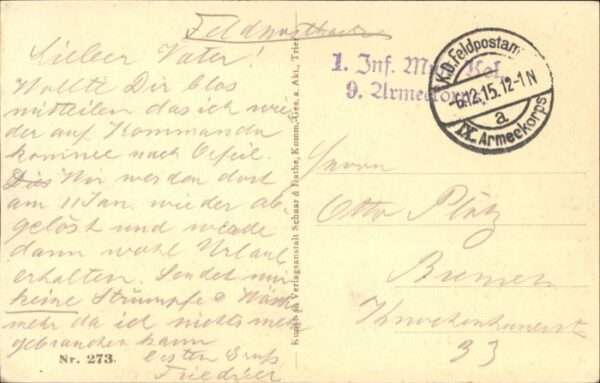 Feldpostkarte
Lieber Vater!
Wollte Dir blos
mitteilen das ich wie
der auf Kommando
komme nach
Wir werden dort
am 11 Jan. wieder ab
gelöst und werde
dann wohl Urlaub
erhalten. Sendet mir
keine Strümpfe & Wäsche
mehr da ich nichts mehr
gebrauchen kann
besten Gruß
Friedrich
Nr. 273.
Kunst- u. Verlagsanstalt Schaar & Dathe, Komm.-Ges. a. Akt., Trier
1. Inf. Mun. Kol.
9. Armeekorps
K.D. Feldpostam
6.12.15.12-1N
a
IX. Armeekorps
Herrn
Otto
Bremen
Knochenhauerst
33